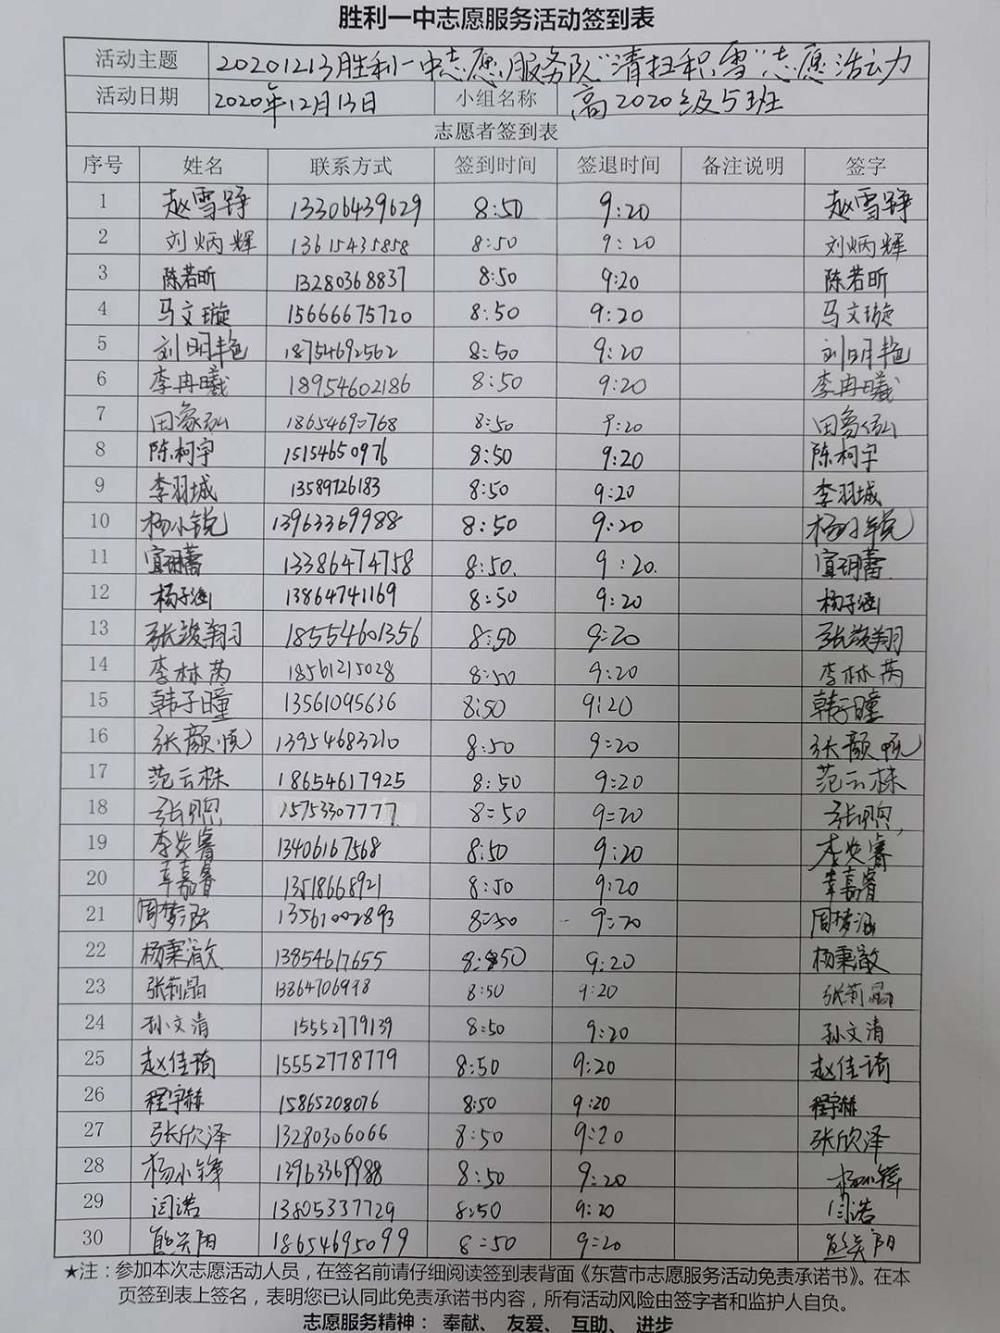 胜利一中志愿服务活动签到表
活动主题 20201213胜利一中志愿服务队"清扫积雪"志愿活动
活动日期 2020年12月13日 小组名称 高2020级5班
志愿者签到表
序号 姓名 联系方式 签到时间 签退时间 备注说明 签字
1 赵雪铮 13306439629 8:50 9:20 赵雪铮
2 刘炳辉 13615435858 8:50 9:20 刘炳辉
3 陈若昕 13280368837 8:50 9:20 陈若昕
4 马文璇 15666675720 8:50 9:20 马文璇
5 刘明艳 18754692562 8:50 9:20 刘明艳
6 李冉曦 18954602186 8:50 9:20 李冉曦
7 田象弘 18654690768 8:50 9:20 田象弘
8 陈柯宇 15154650976 8:50 9:20 陈柯宇
9 李羽城 13589726183 8:50 9:20 李羽城
10 杨小锐 13963369988 8:50 9:20 杨小锐
11 宜玥蕾 13386474758 8:50. 9:20. 宜玥蕾
12 杨子涵 13864741169 8:50 9:20 杨子涵
13 张竣翔 18554601356 8:50 9:20 张竣翔
14 李林芮 18561215028 8:50 9:20 李林芮
15 韩子曈 13561095636 8:50 9:20 韩子曈
16 张颜悦 13954683210 8:50 9:20 张颜悦
17 范云栋 18654617925 8:50 9:20 范云栋
18 张煦 15753307777 8:50 9:20 张煦
19 李炎睿 13406167568 8:50 9:20 李炎睿
20 辛嘉睿 13518668921 8:50 9:20 辛嘉睿
21 周梦涵 13561002893 8:50 9:20 周梦涵
22 杨秉澈 13854617655 8:50 9:20 杨秉澈
23 张莉晶 13864706998 8:50 9:20 张莉晶
24 孙文清 15552779139 8:50 9:20 孙文清
25 赵佳琦 15552778779 8:50 9:20 赵佳琦
26 程宇赫 15865208076 8:50 9:20 程宇赫
27 张欣泽 13280306066 8:50 9:20 张欣泽
28 杨小锋 13963369988 8:50 9:20 杨小锋
29 闫诺 13805337729 8:50 9:20 闫诺
30 阳 18654695099 8:50 9:20 阳
★注：参加本次志愿活动人员，在签名前请仔细阅读签到表背面《东营市志愿服务活动免责承诺书》。在本
页签到表上签名，表明您已认同此免责承诺书内容，所有活动风险由签字者和监护人自负。
志愿服务精神： 奉献、 友爱、 互助、 进步